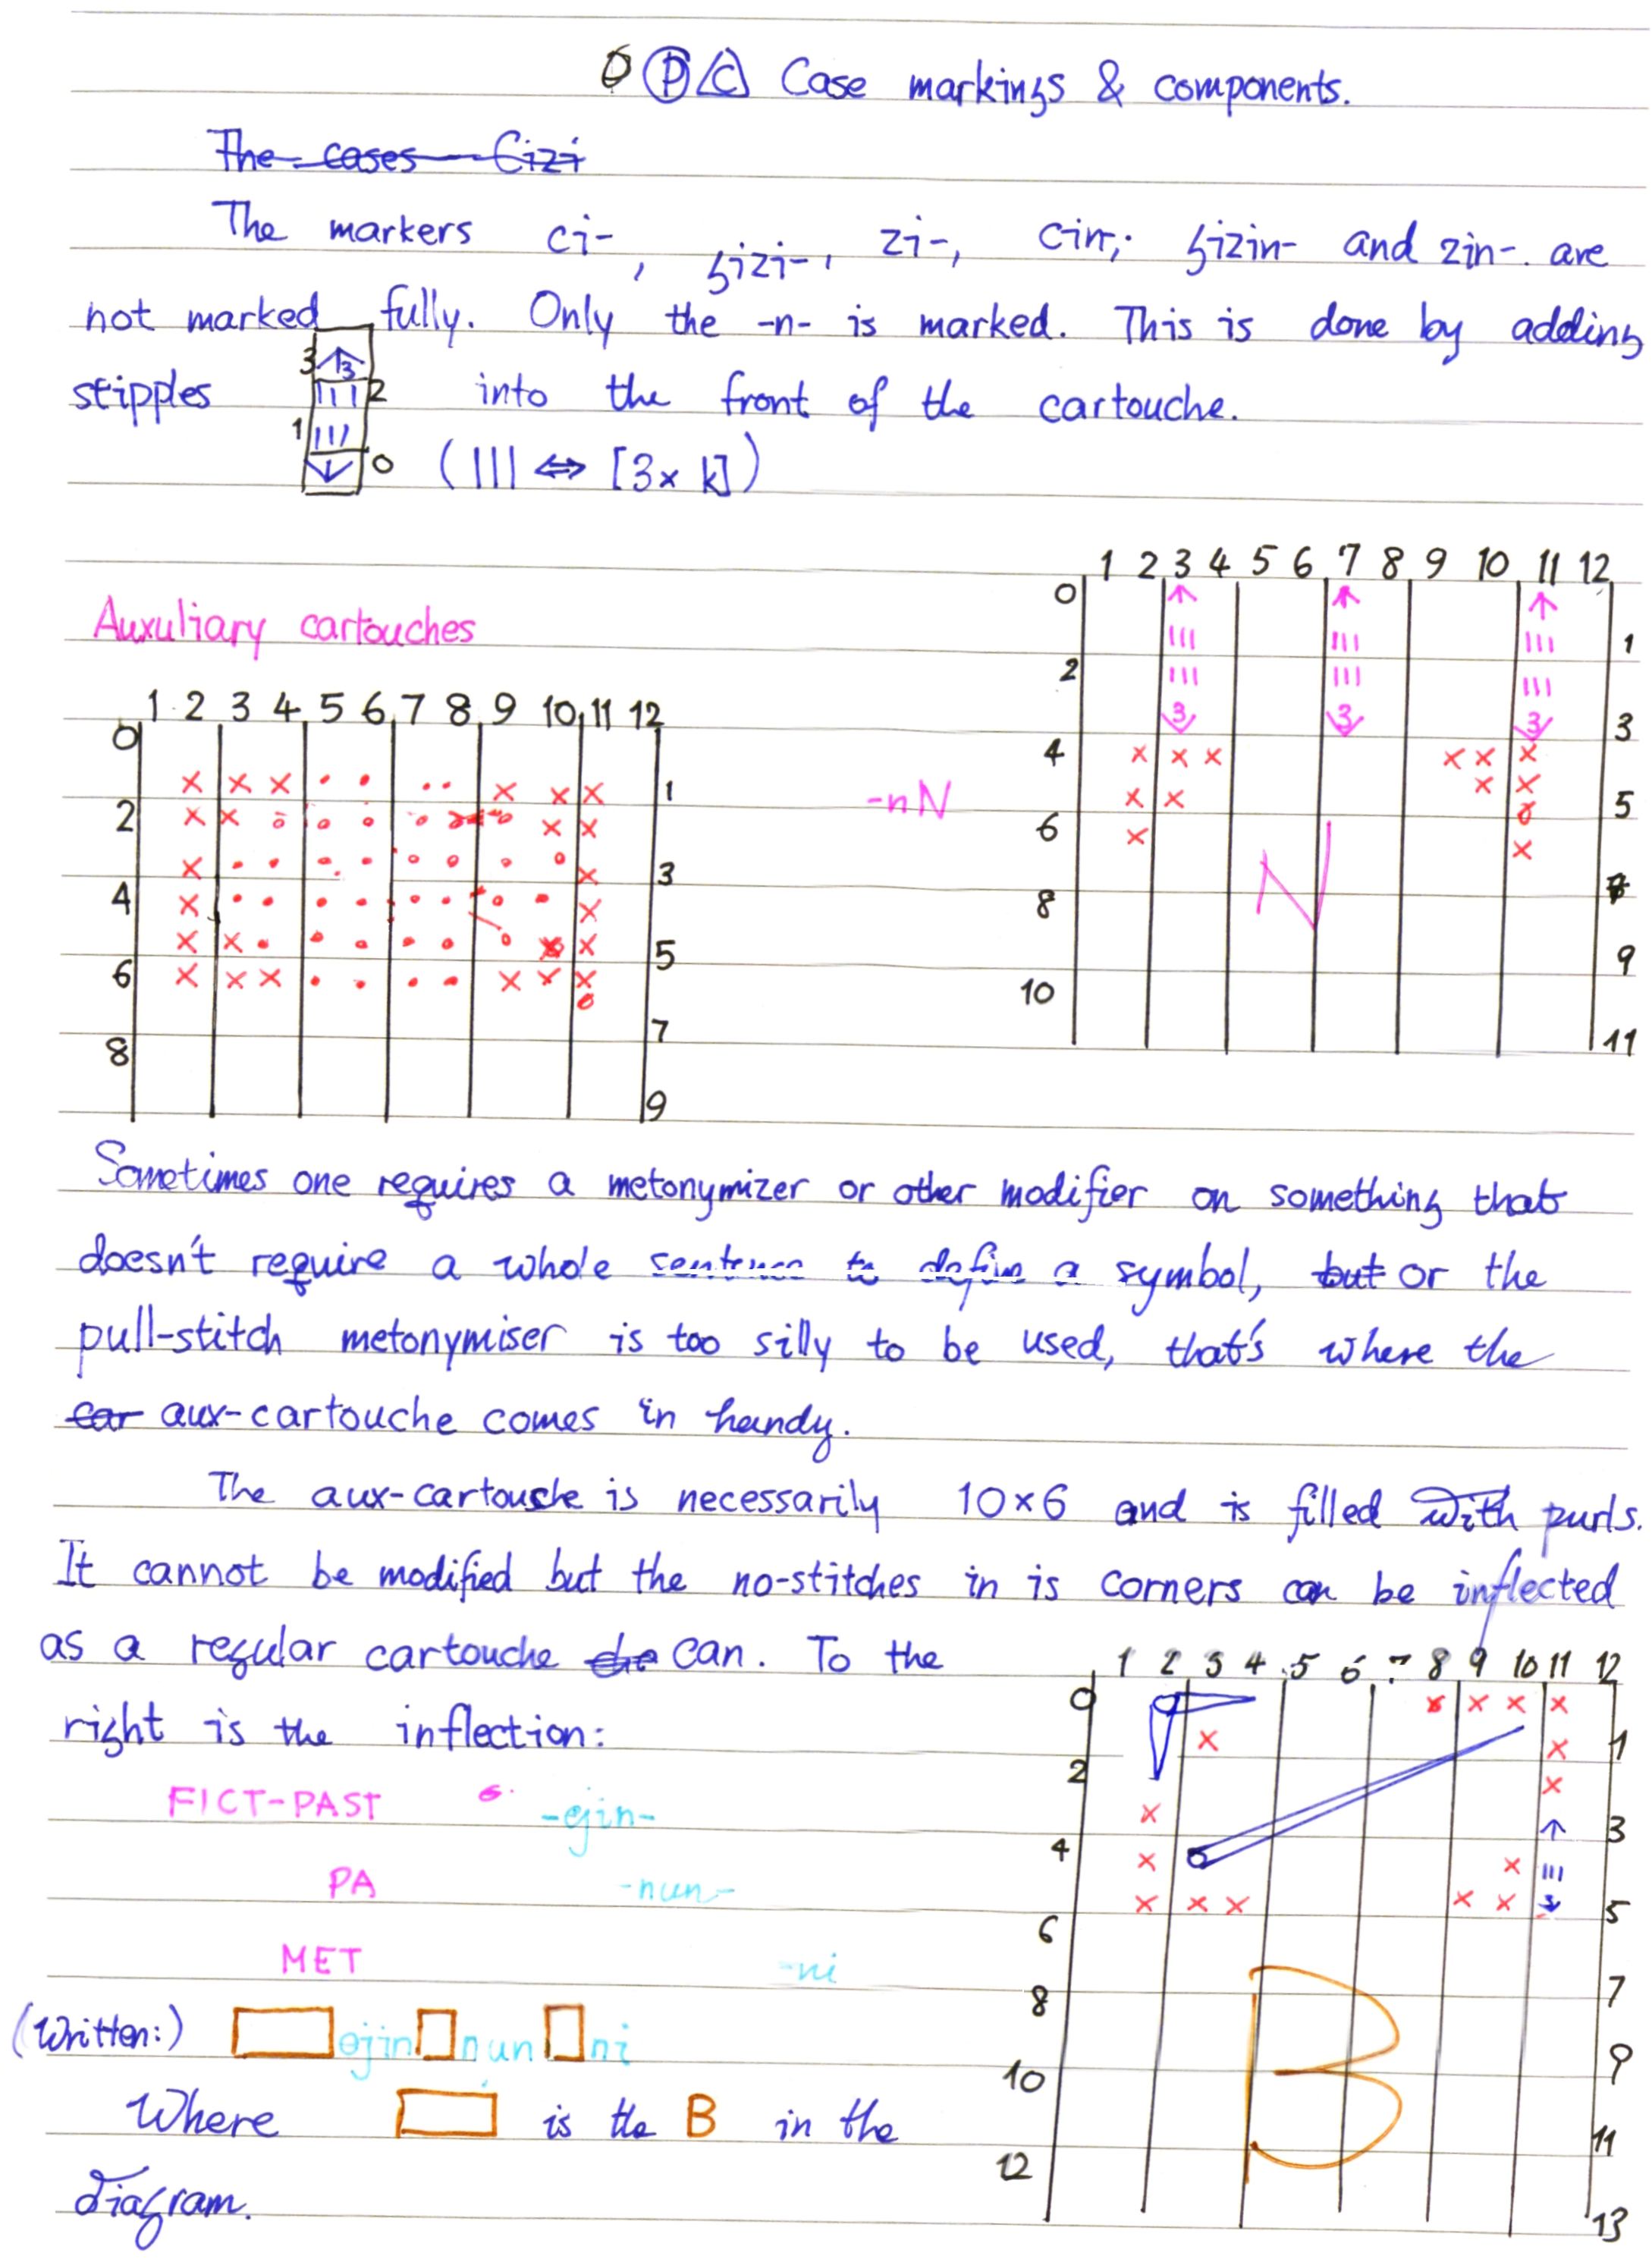 Ⓟ/C Case markings & components.
The cases Cizi
The markers ci-, sizi-, zi-, cin-, sizin- and zin-. are
not marked fully. Only the -n- is marked. This is done by adding
stipples into the front of the cartouche.
3 3
2
1
0 (||| ⇔ [3x k])
Auxuliary cartouches
1 2 3 4 5 6 7 8 9 10 11 12
0
1
2
3
4
5
6
7
8
9
1 2 3 4 5 6 7 8 9 10 11 12
0
1
2
3 3 3
3
4
5
6
7
8
9
10
11
-nN
N
Sometimes one requires a metonymizer or other modifier on something that
doesn't require a whole sentence to define a symbol, but or the
pull-stitch metonymiser is too silly to be used, that's where the
car aux-cartouche comes in handy.
The aux-cartouche is necessarily 10x6 and is filled with purls.
It cannot be modified but the no-stitches in is corners can be inflected
as a regular cartouche can. To the
right is the inflection:
FICT-PAST -ejin-
PA -nun-
MET -ni
(Written:) ejin nun ni
Where is the B in the
diagram.
1 2 3 4 5 6 7 8 9 10 11 12
0
1
2
3
4
5
6
7
8
9
10
11
12
13
B